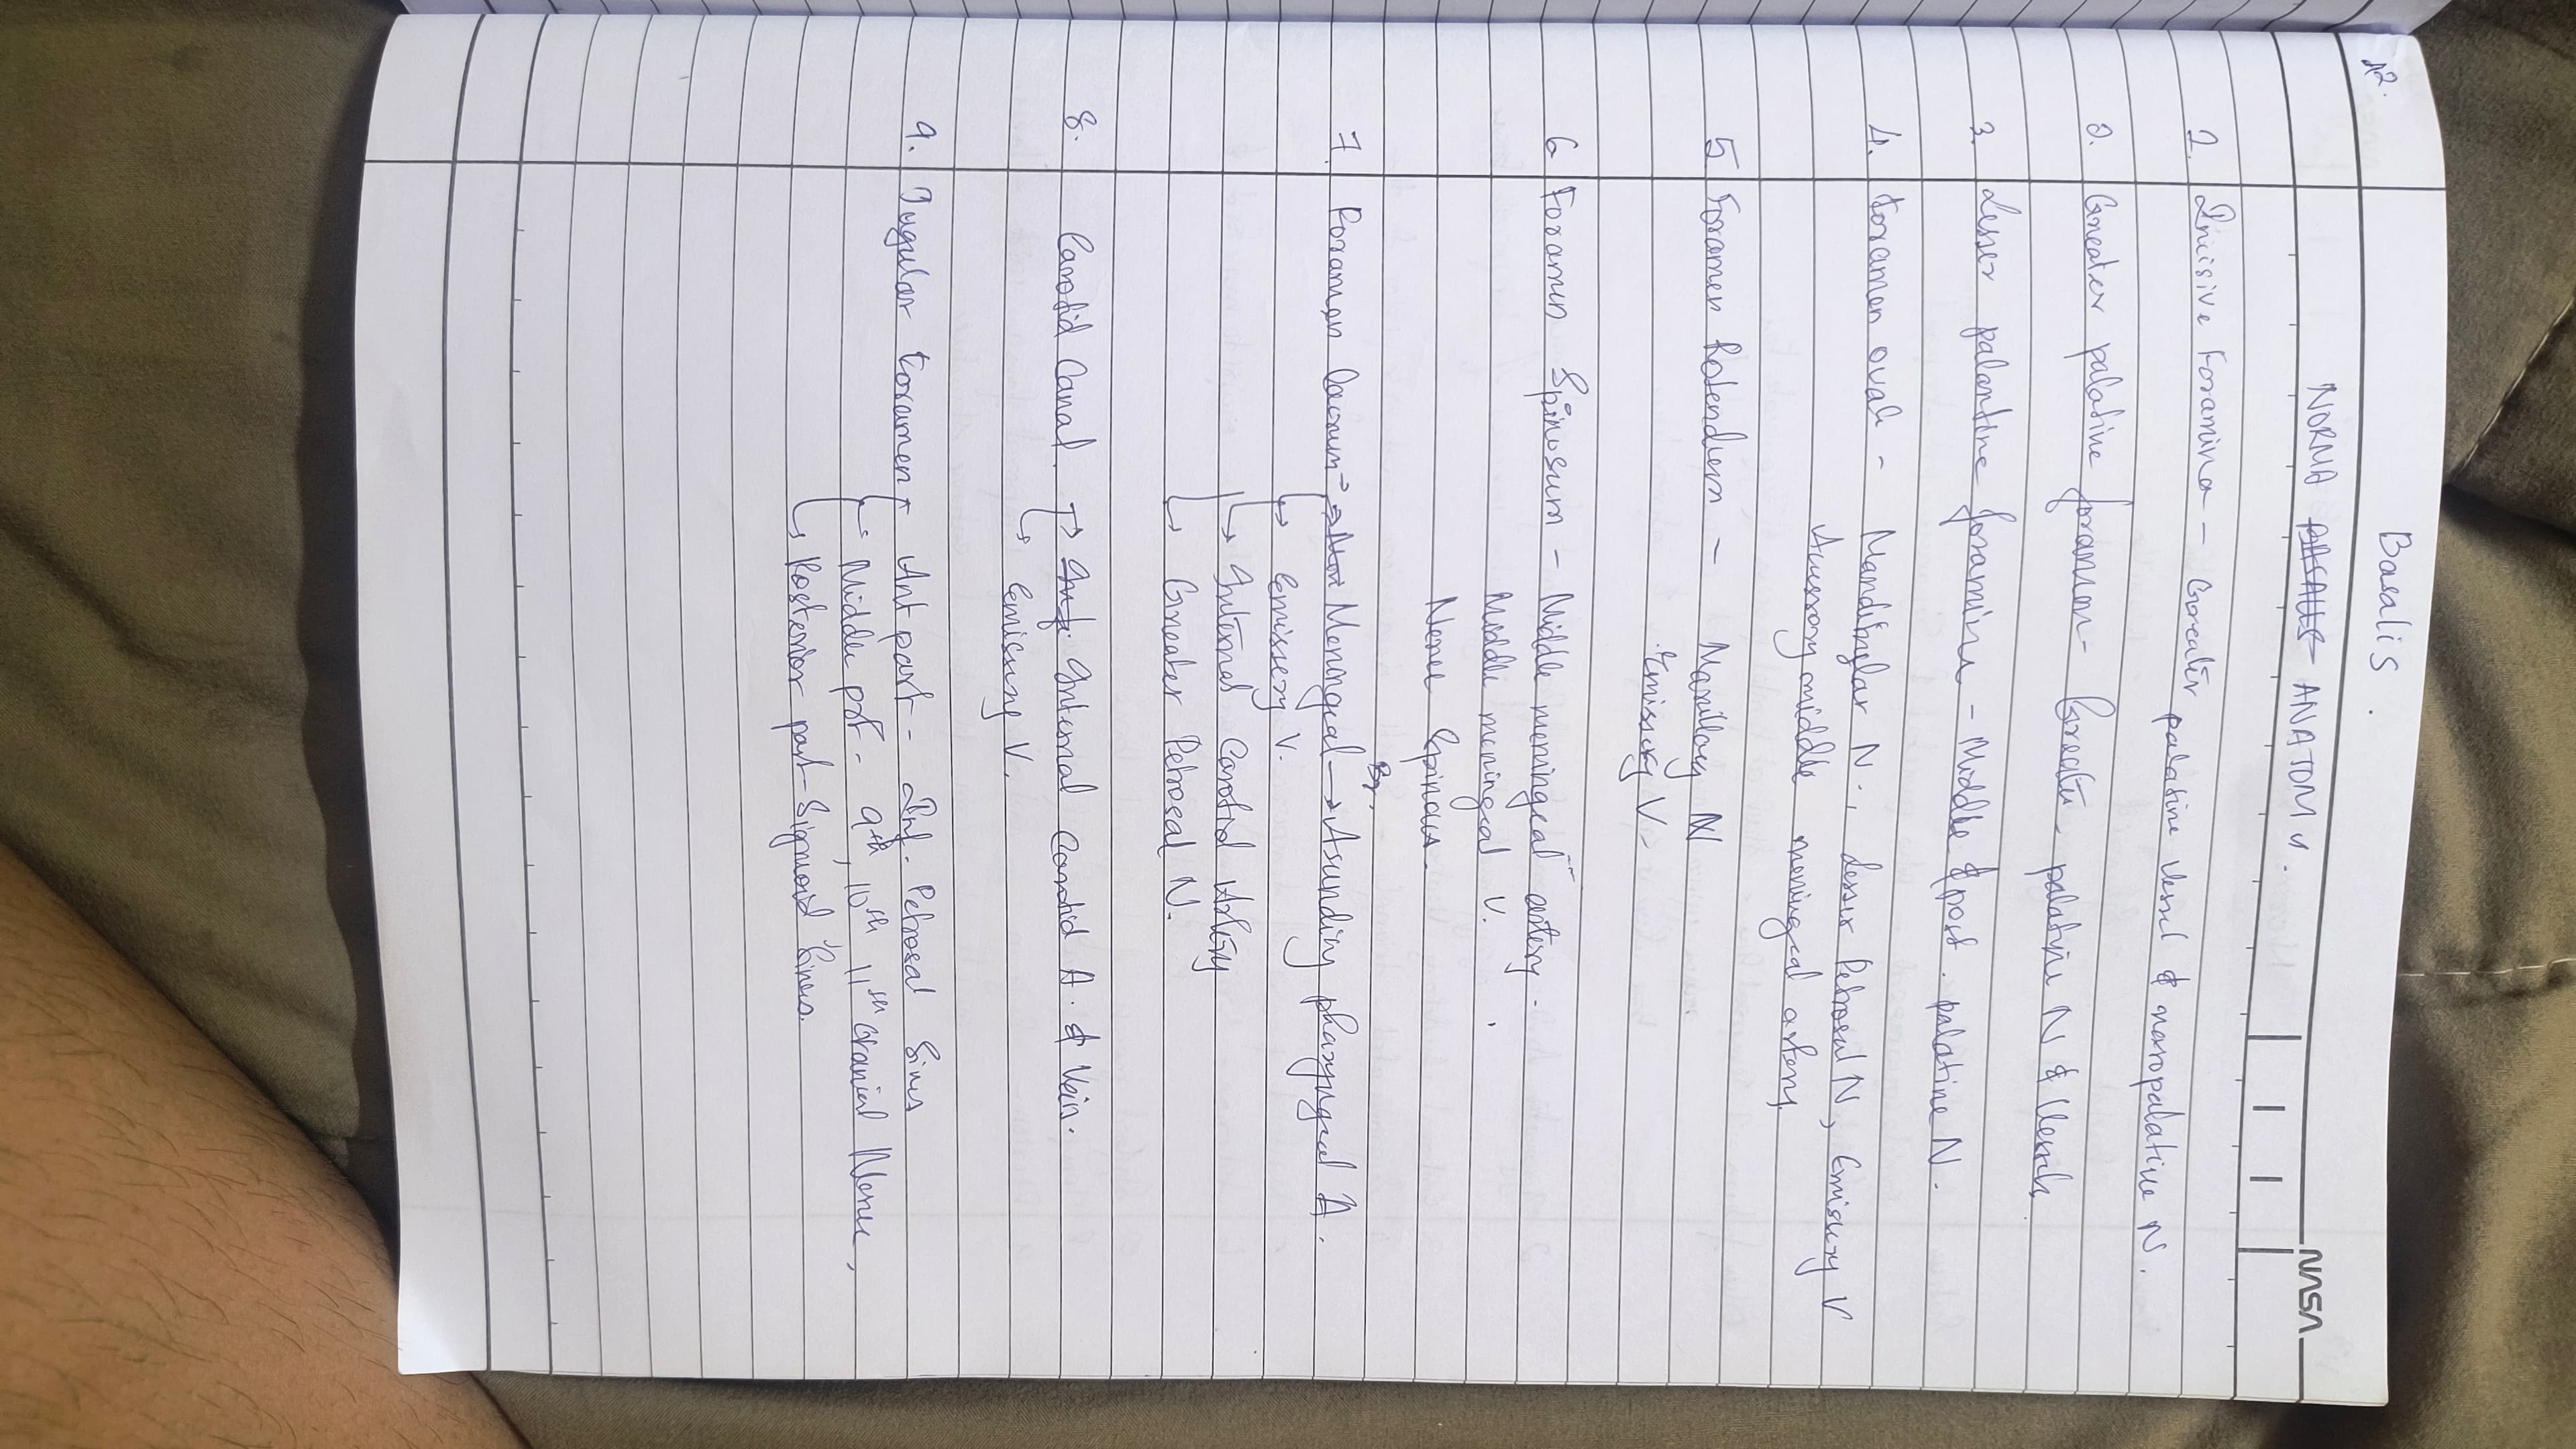 12.
Basalis.
NORMA ANATOMY.
VSUN
1. Incisive Foramina - Greater palatine vessel & nasopalatine N.
2. Greater palatine foramen - Greater palatine N & Vessels
3. Lesser palantine foramine - Middle & post. palatine N.
4. Foramen ovale - Mandibular N., Lesser Petrosal N, Emissary V
Accessory middle meningeal artery
5. Foramen Rotendum - Maxillary N
Emissary V.
6 Foramen Spinosum - Middle meningeal artery.
Middle meningeal V.
Nerve Spinous.
Br.
7. Foramen Lacerum → Meningeal → Ascending pharyngeal A.
↳ Emissery V.
↳ Internal Carotid Artery
↳ Greater Petrosal N.
8. Carotid Canal. → Internal Carotid A. & Vein.
↳ Emissary V.
9. Jugular Foramen Ant part - Inf. Petrosal Sinus
Middle part - 9th, 10th 11th cranial Nerve,
↳ Posterior part - Sigmoid Sinus.